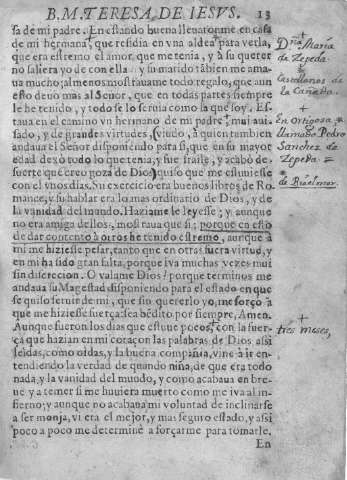 B. M. TERESA, DE IESVS. 13
sa de mi padre. En estando buena lleuaronme en casa
de mi hermana, que residia en vna aldea para verla,
que era estremo el amor, que me tenia, y à su querer
no saliera yo de con ella, y su marido tãbien me ama-
ua mucho; almenos mostrauame todo regalo, que aun
esto deuo mas al Señor, que en todas partes siempre
le he tenido, y todo se lo seruia como la que soy. Es-
taua en el camino vn hermano de mi padre, mui aui-
sado, y de grandes virtudes, viudo, à quien tambien
andaua el Señor disponiendo para si, que en su mayor
edad dexò todo lo que tenia, y fue fraile, y acabò de
suerte que creo goza de Dios; quiso que me estuuiesse
con el vnos dias. Su exercicio era buenos libros de Ro-
mance, y su hablar era lo mas ordinario de Dios, y de
la vanidad del mundo. Haziame le leyesse; y aunque
no era amiga dellos, mostraua que si; porque en esto
de dar contento à otros he tenido estremo, aunque à
mi me hiziesse pesar, tanto que en otras fuera virtud, y
en mi ha sido gran falta, porque iva muchas vezes mui
sin discrecion. O valame Dios! porque terminos me
andaua su Magestad disponiendo para el estado en que
se quiso seruir de mi, que sin quererlo yo, me forçò à
que me hiziesse fuerça: sea bẽdito por siempre, Amen.
Aunque fueron los dias que estuue pocos, con la fuer-
ça que hazian en mi coraçon las palabras de Dios assi
leidas, como oidas, y la buena compañia, vine à ir en-
tendiendo la verdad de quando niña, de que era todo
nada, y la vanidad del mundo, y como acabaua en bre-
ue, y a temer si me huuiera muerto como me iva al in-
fierno; y aunque no acabaua mi voluntad de inclinarse
a ser monja, vi era el mejor, y mas seguro estado, y assi
poco a poco me determinè a forçarme para tomarle.
En
Dña. Maria
de Zepeda.
Castellanos de
la Cañada.
En Ortigosa
llamabo. Pedro
Sanchez de
Zepeda
tres meses,